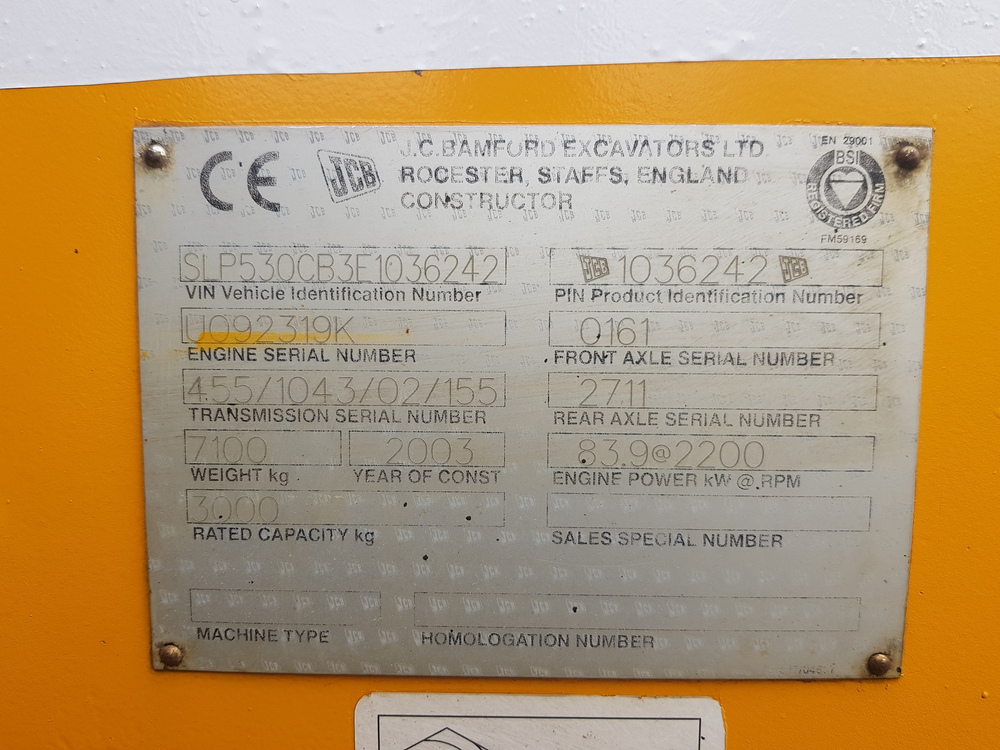 CE JCB J.C.BAMFORD EXCAVATORS LTD
ROCESTER, STAFFS, ENGLAND
CONSTRUCTOR
EN 29001
BSI
REGISTERED FIRM
FM59169
SLP530CB3E1036242
VIN Vehicle Identification Number
JCB 1036242 JCB
PIN Product Identification Number
U092319K
ENGINE SERIAL NUMBER
0161
FRONT AXLE SERIAL NUMBER
455/1043/02/155
TRANSMISSION SERIAL NUMBER
2711
REAR AXLE SERIAL NUMBER
7100
WEIGHT kg
2003
YEAR OF CONST
83.9@2200
ENGINE POWER kW @ RPM
3000
RATED CAPACITY kg
SALES SPECIAL NUMBER
MACHINE TYPE
HOMOLOGATION NUMBER